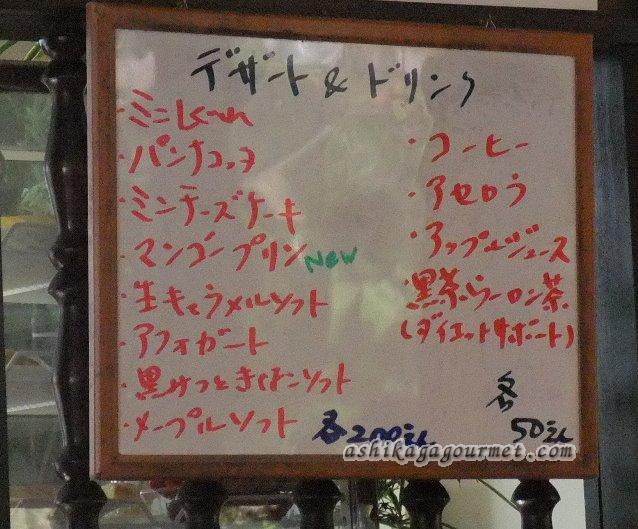 デザート & ドリンク
・ミニしくーれん
・パンナコッタ
・ミニチーズケーキ
・マンゴープリン New
・生キャラメルソフト
・アフォガート
・黒みつときなこソフト
・メープルソフト
各200えん
・コーヒー
・アセロラ
・アップルジュース
・黒茶ウーロン茶
(ダイエットサポート)
各
50えん
ashikagagourmet.com